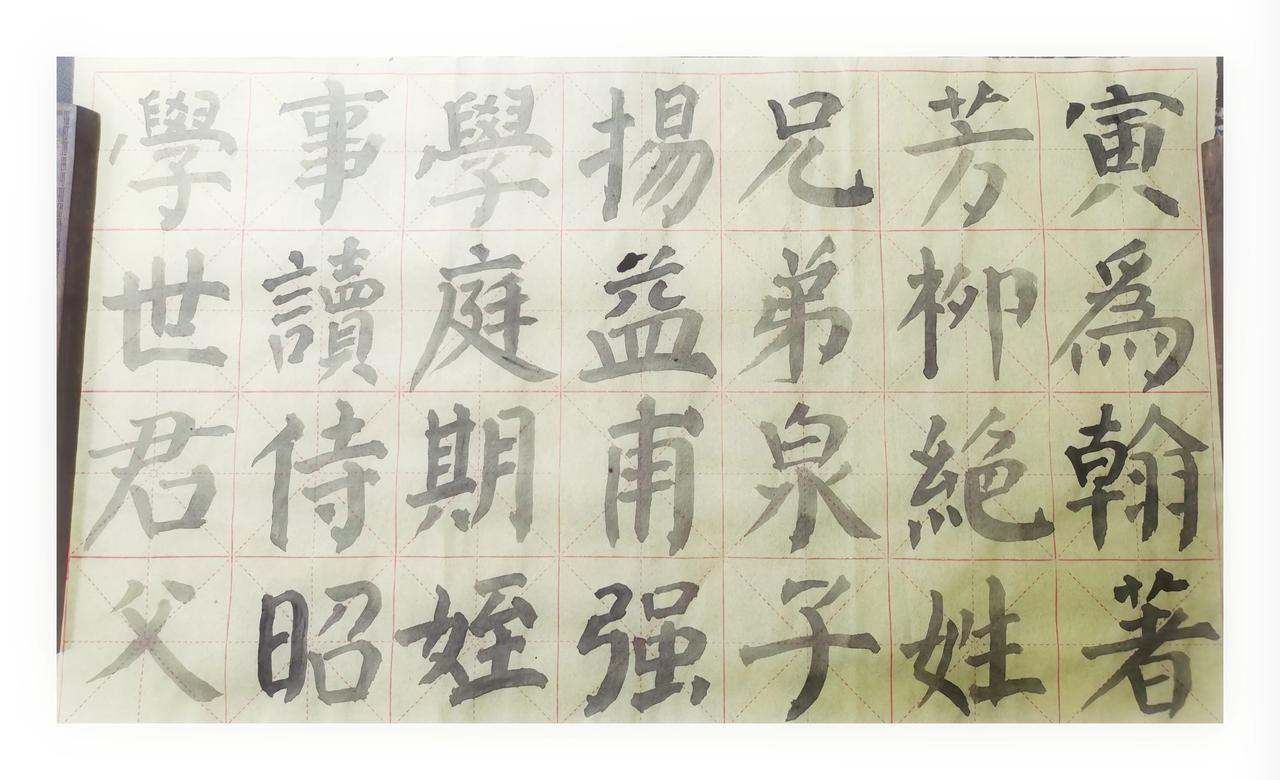 寅爲翰著
芳柳絶姓
兄弟泉子
揚益甫强
學庭期姪
事讀侍昭
學世君父